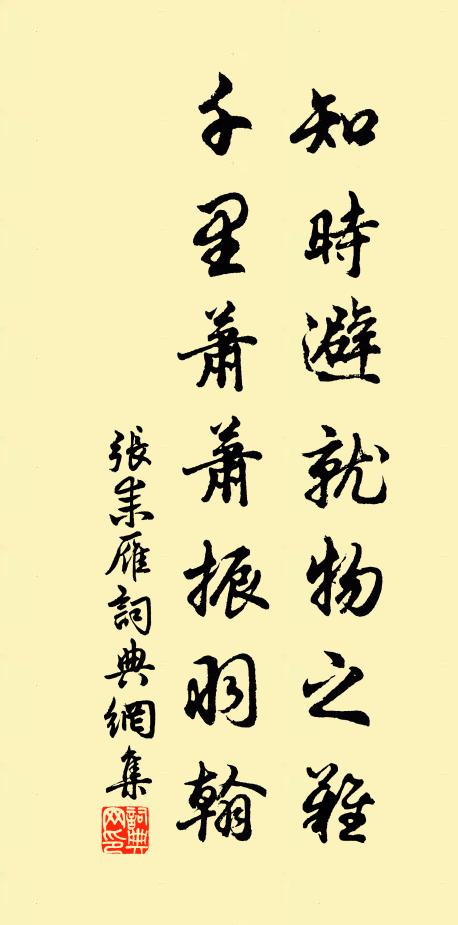 知時避就物之難
千里蕭蕭振羽翰
張耒雁詞典網集
詞典網印